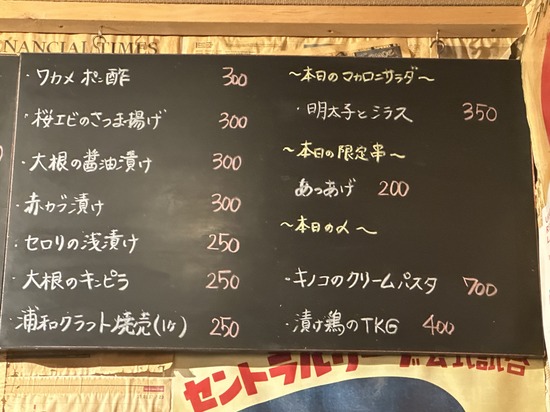 FINANCIAL TIMES
・ワカメポン酢 300
・桜エビのさつま揚げ 300
・大根の醤油漬け 300
・赤カブ漬け 300
・セロリの浅漬け 250
・大根のキンピラ 250
浦和クラフト焼売(1ヶ) 250
〜本日のマカロニサラダ〜
・明太子とシラス 350
〜本日の限定串〜
あつあげ 200
〜本日の〆〜
・キノコのクリームパスタ 700
・漬け鶏のTKG 400
セントラルリーグ公式試合